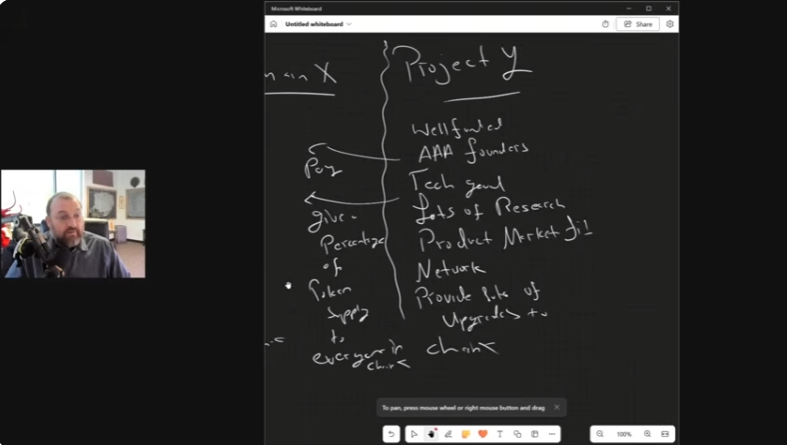 Microsoft Whiteboard
Untitled whiteboard
Share
X
Project Y
Well funded
AAA founders
Pay
Tech good
Lots of Research
give
Percentage
of
Product Market fit
Network
Token
Supply
to
everyone in
chain
Provide lots of
Upgrades to
chain
To pan, press mouse wheel or right mouse button and drag
100%